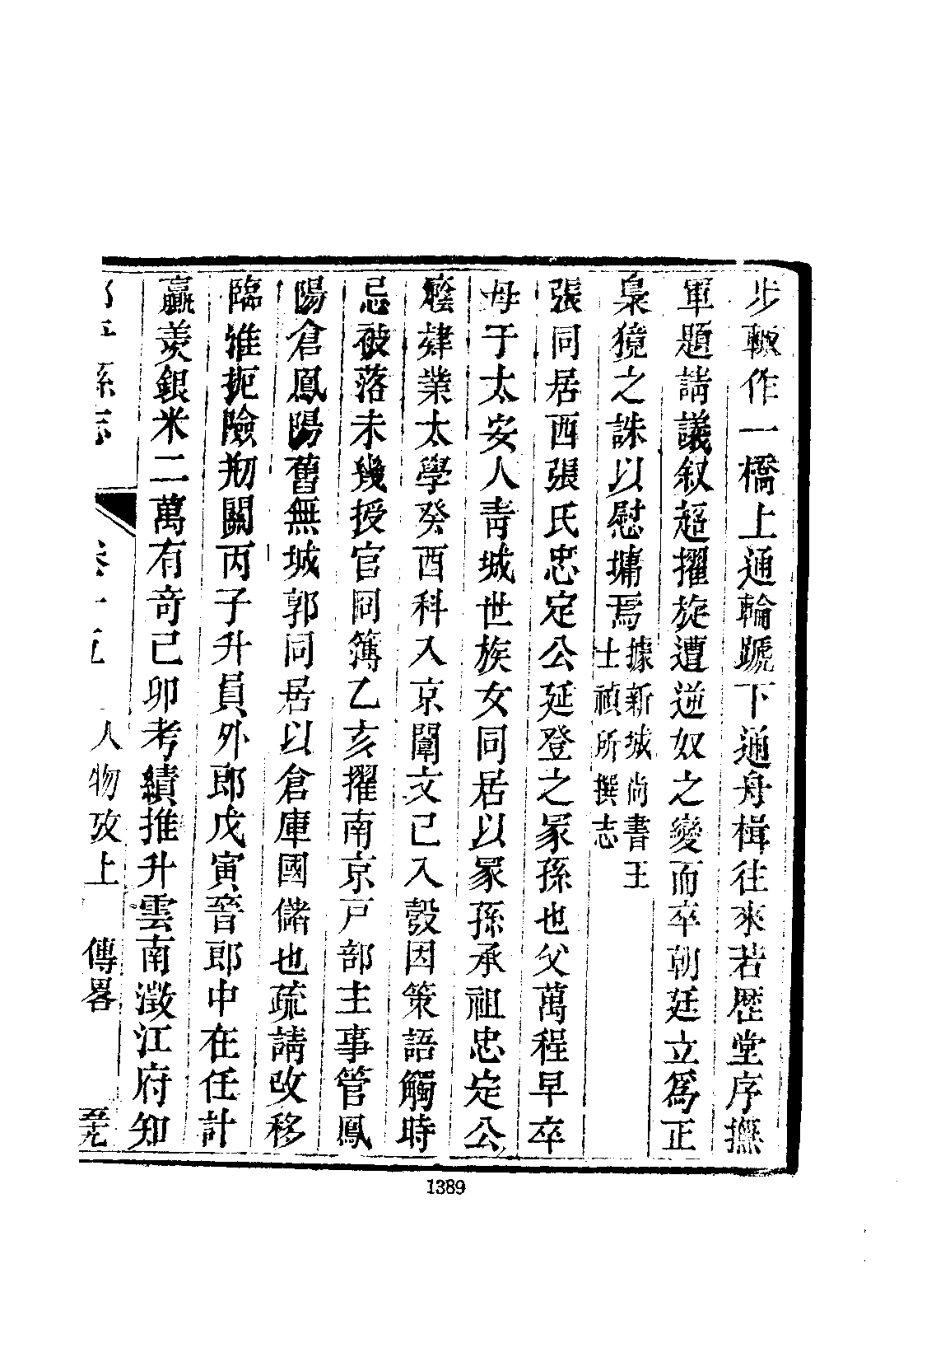 步輙作一橋上通輪蹏下通舟楫往來若歴堂序撫
軍題請議叙超擢旋遭逆奴之變而卒朝廷立爲正
梟獍之誅以慰墉焉據新城尚書王
士禎所撰志
張同居西張氏忠定公延登之冢孫也父萬程早卒
母于太安人青城世族女同居以冢孫承祖忠定公
廕肄業太學癸酉科入京闈文已入彀因策語觸時
忌被落未幾授官同簿乙亥擢南京戸部主事管鳳
陽倉鳳陽舊無城郭同居以倉庫國儲也疏請改移
臨淮扼險剏關丙子升員外郎戊寅晉郎中在任計
贏羨銀米二萬有奇己卯考績推升雲南澂江府知
縣志 卷十五 人物攷上 傳畧
1389